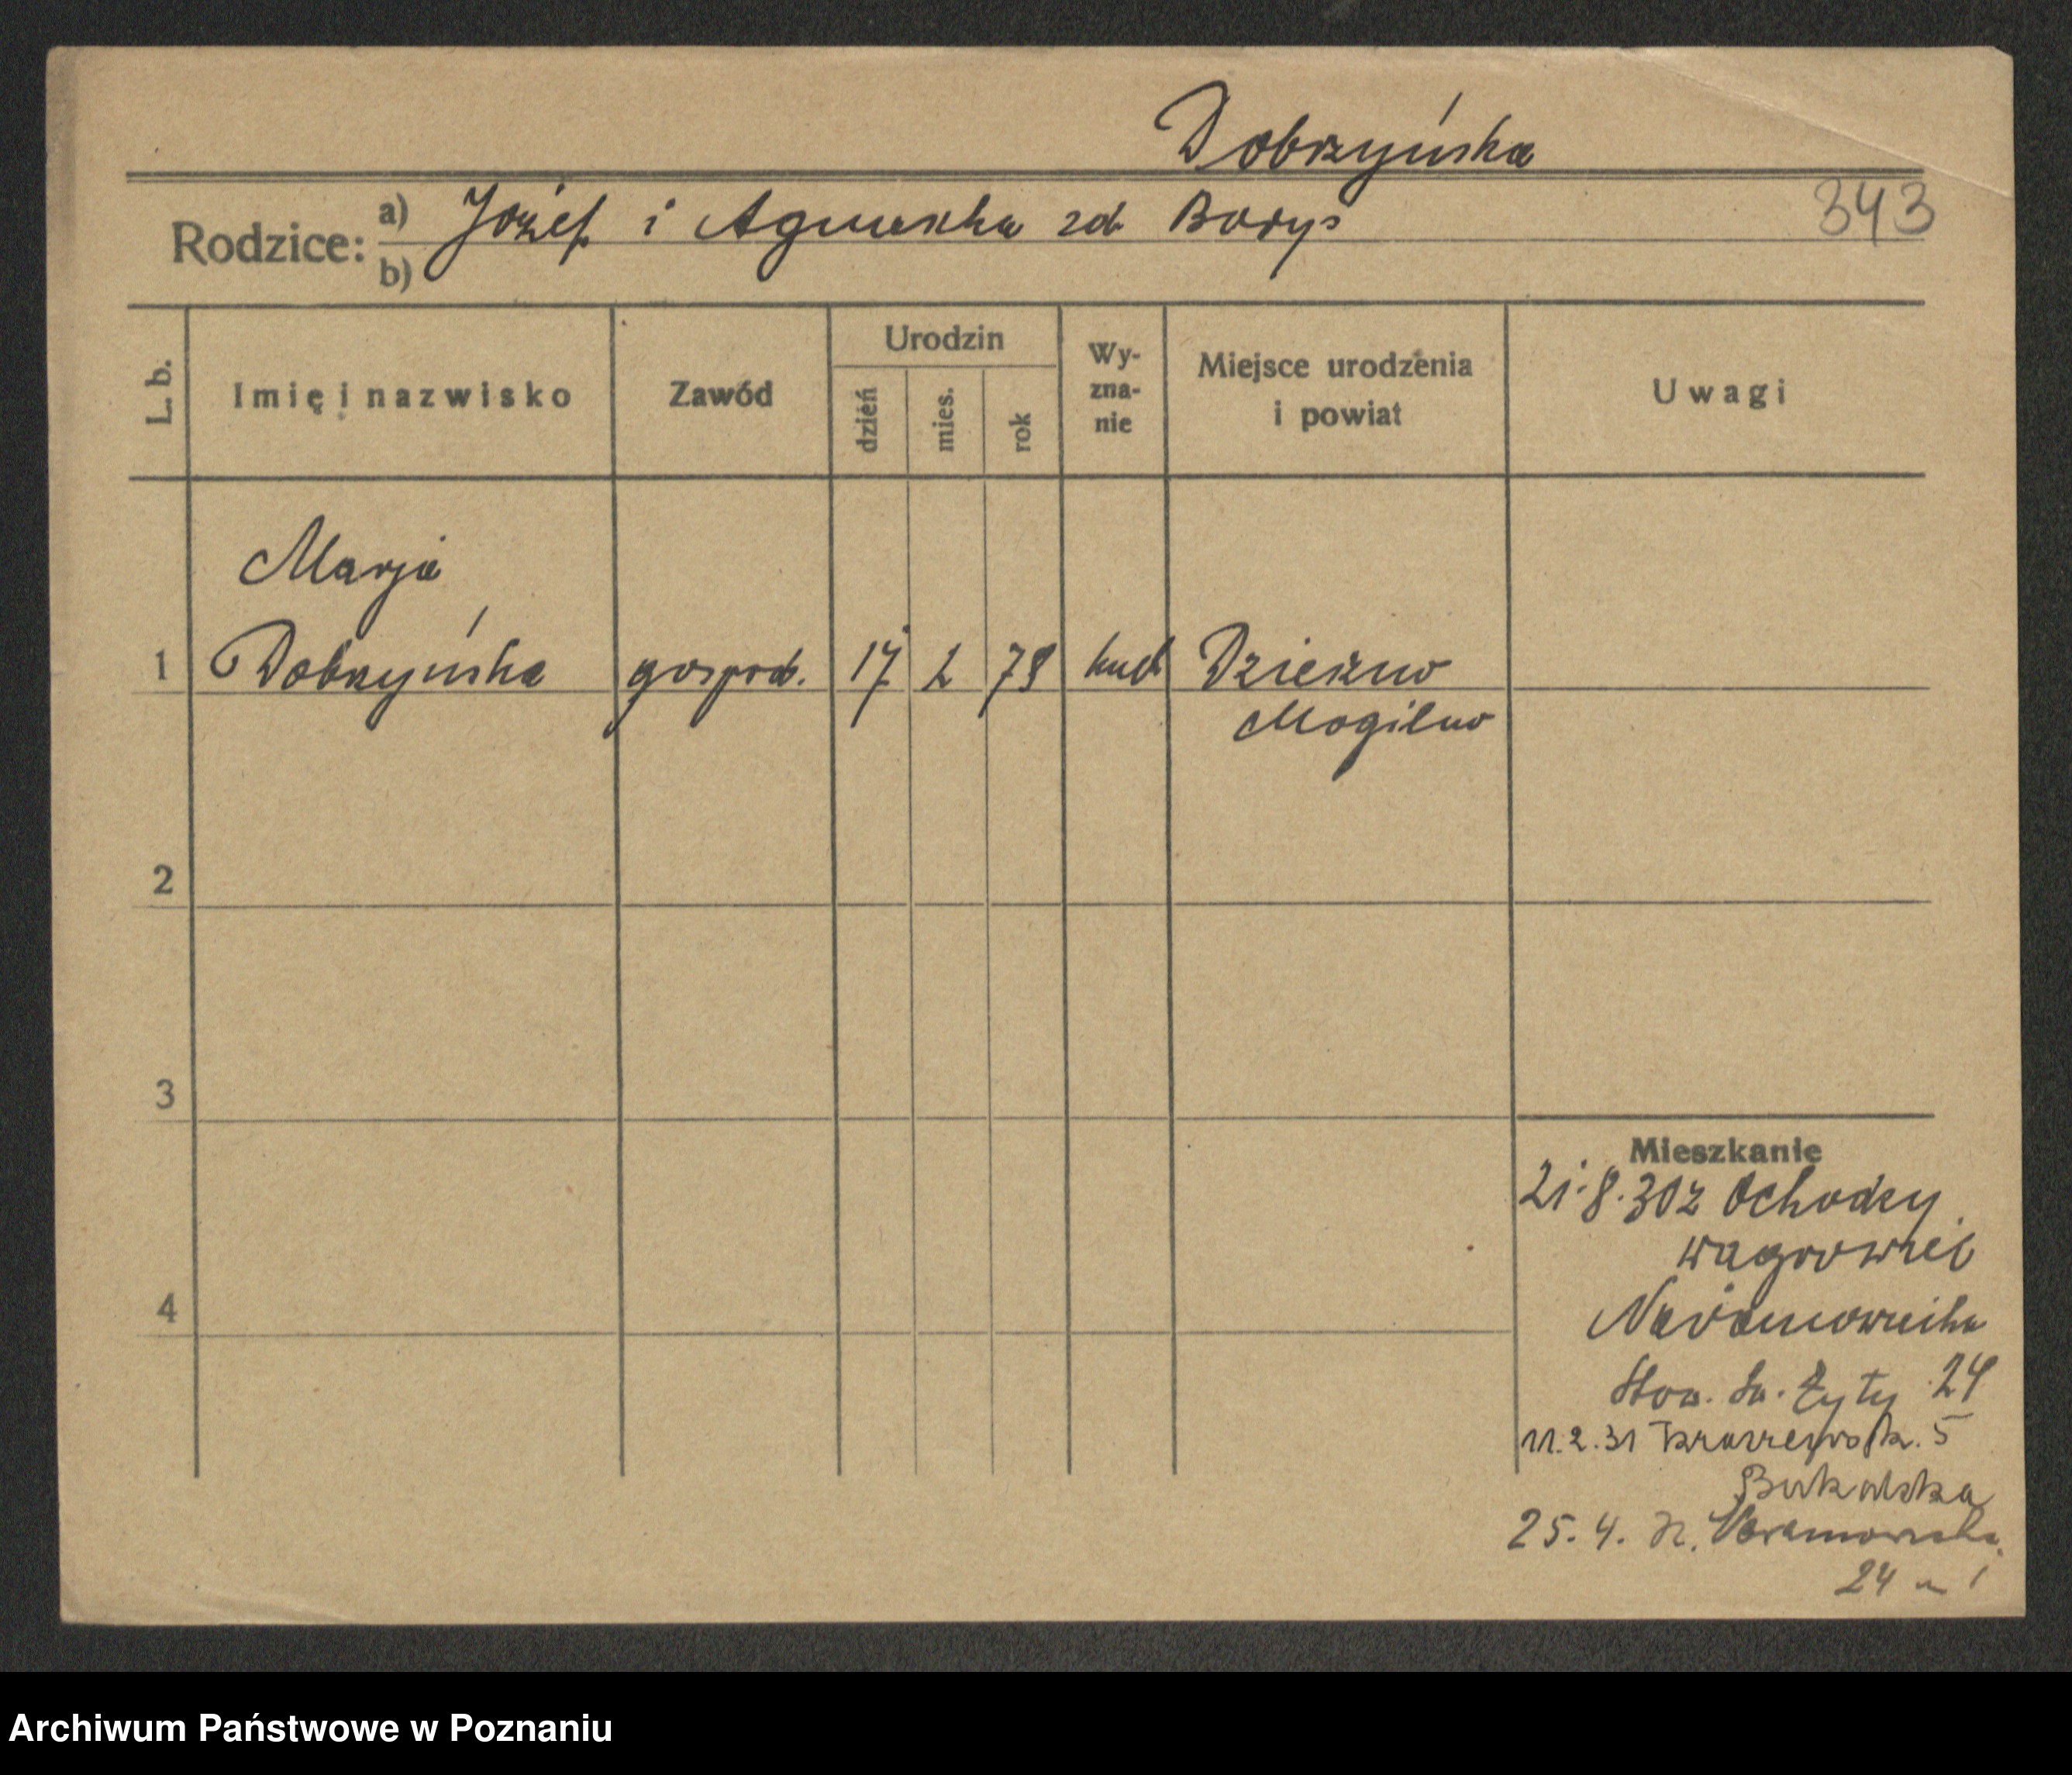 Dobrzyńska
343
Rodzice: a) Józef i Agnieszka zd Borys
b)
L. b.
Imię i nazwisko
Zawód
Urodzin
dzień
mies.
rok
Wy-
zna-
nie
Miejsce urodzenia
i powiat
Uwagi
Marja
1 Dobrzyńska gospod. 17 2 78 Mogilno
2
3
4
Mieszkanie
21.8.30 z Ochodzy
wągrowiec
Naramowicka
Św. Zyty 24
11.2.31 5
Bukowska
25.4. Naramowicka
24 m 1
Archiwum Państwowe w Poznaniu